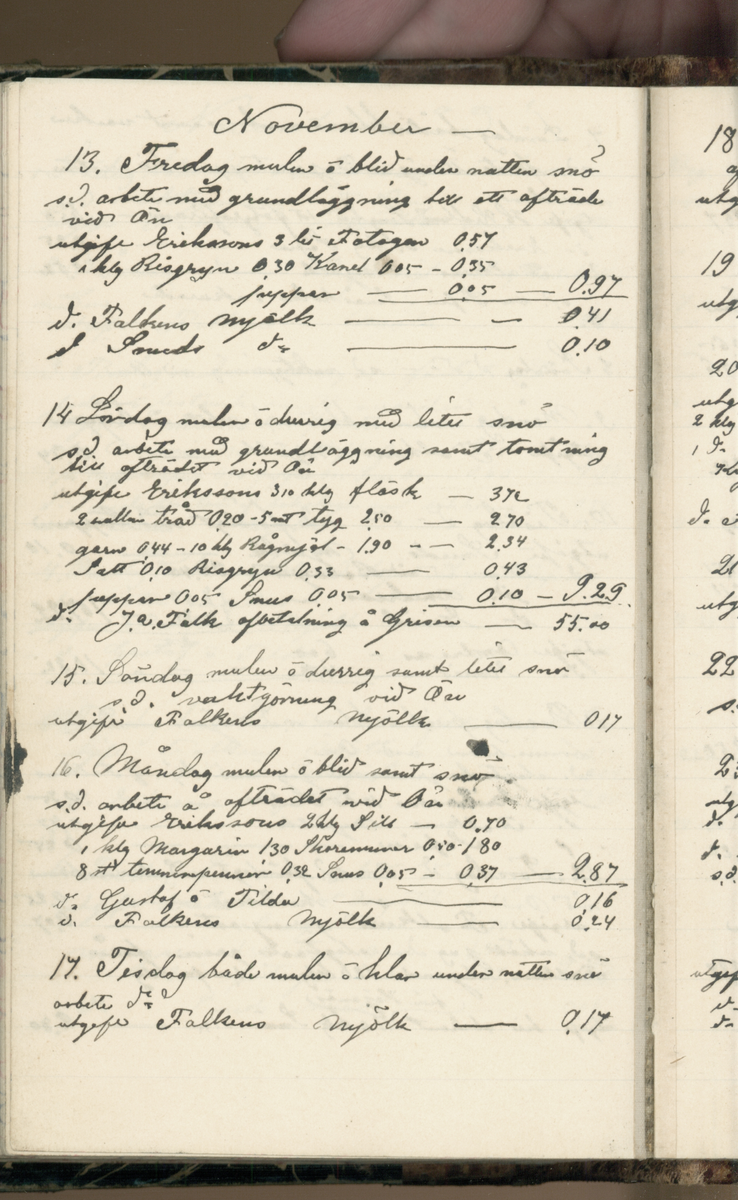 November —
13. Fredag mulen o blid under natten snö
s.d. arbete med grundläggning till ett afträde
vid Ån
utgift Erikssons 3 lit Fotogen 0,57
1 klg Risgryn 0,30 Kanel 0,05 - 0,35
peppar — 0,05 — 0,97
d. Falkens Mjölk — 0,41
d Smeds d:o — 0,10
14 Lördag mulen o durrig med litet snö
s.d. arbete med grundläggning samt tomtning
till afträdet vid Ån
utgift Erikssons 310 klg fläsk — 372
2 tråd 0,20 - 5 mt tyg 2,50 — 2,70
garn 0,44 - 10 klg Rågmjöl - 1,90 - - 2,34
Salt 0,10 Risgryn 0,33 — 0,43
peppar 0,05 Snus 0,05 — 0,10 - 9.29
d. J.A. Falk afbetalning å Grisen — 55.00
15. Söndag mulen o durrig samt litet snö
s.d. vaktgörning vid Ån
utgift Falkens Mjölk — 0,17
16. Måndag mulen o blid samt snö
s.d. arbete å afträdet vid Ån
utgift Erikssons 2 klg Sill — 0,70
1 klg Margarin 1,30 0,50 - 1,80
8 st 0,32 Snus 0,05 - 0,37 — 2,87
d. Gustaf o Tilda — 0,16
d. Falkens Mjölk — 0,24
17. Tisdag både mulen o klar under natten snö
arbete d:o
utgift Falkens Mjölk — 0,17
18
utg
19
utg
20
utg
2 klg
1 d.
d.
21
utg
22
s.
utg
d.
d.
s.d.
utgift
d.
d.